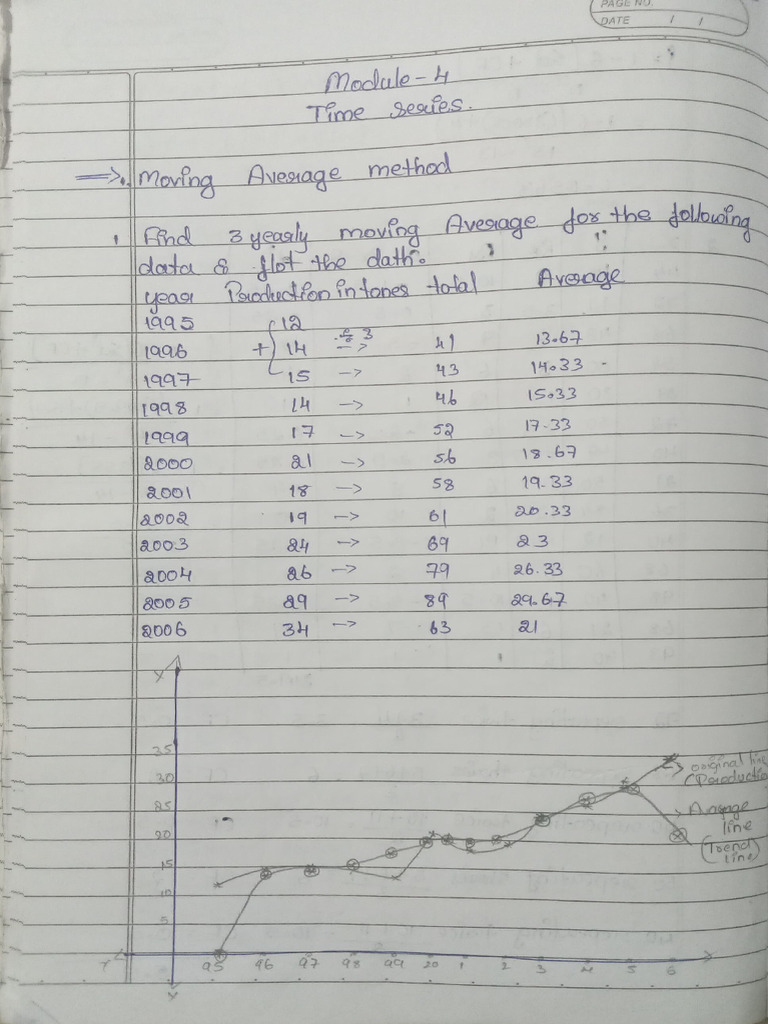 PAGE NO.
DATE / /
Module - 4
Time series.
=>. Moving Average method
1. Find 3 yearly moving Average for the following
data & flot the dath.
year Production in tones total Average
1995 12
1996 + 14 -> 41 13.67
1997 15 -> 43 14.33
1998 14 -> 46 15.33
1999 17 -> 52 17.33
2000 21 -> 56 18.67
2001 18 -> 58 19.33
2002 19 -> 61 20.33
2003 24 -> 69 23
2004 26 -> 79 26.33
2005 29 -> 89 29.67
2006 34 -> 63 21
Y
35
30
25
20
15
10
5
original line
(Productio
Average
line
(Trend
line)
95 96 97 98 99 20 1 2 3 4 5 6 X
Y